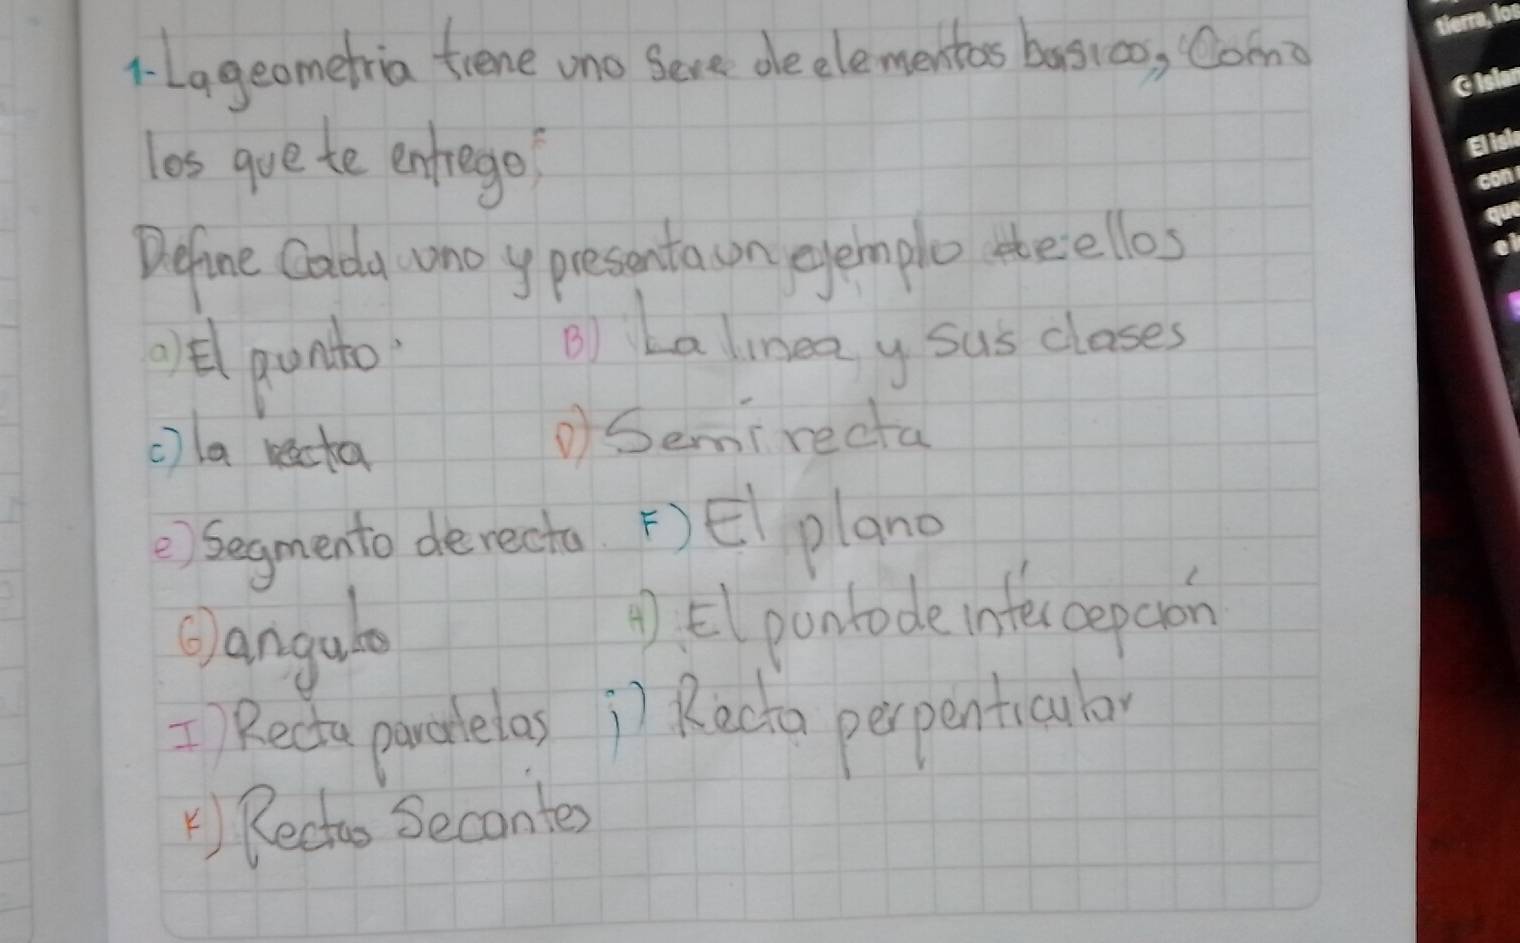 1- La geometria tiene uno Sere de elementos basicos, Como
los que te entrego:
Define Cada uno y presenta un ejemplo de ellos
a) El punto. B) La linea y sus clases
c) la recta D) Semirecta
e) Segmento de recta F) El plano
G) angulo H) El punto de intercepción
I) Recta paralelas j) Recta perpenticular
K) Rectas Secantes
tierra, los
El isla
con
que